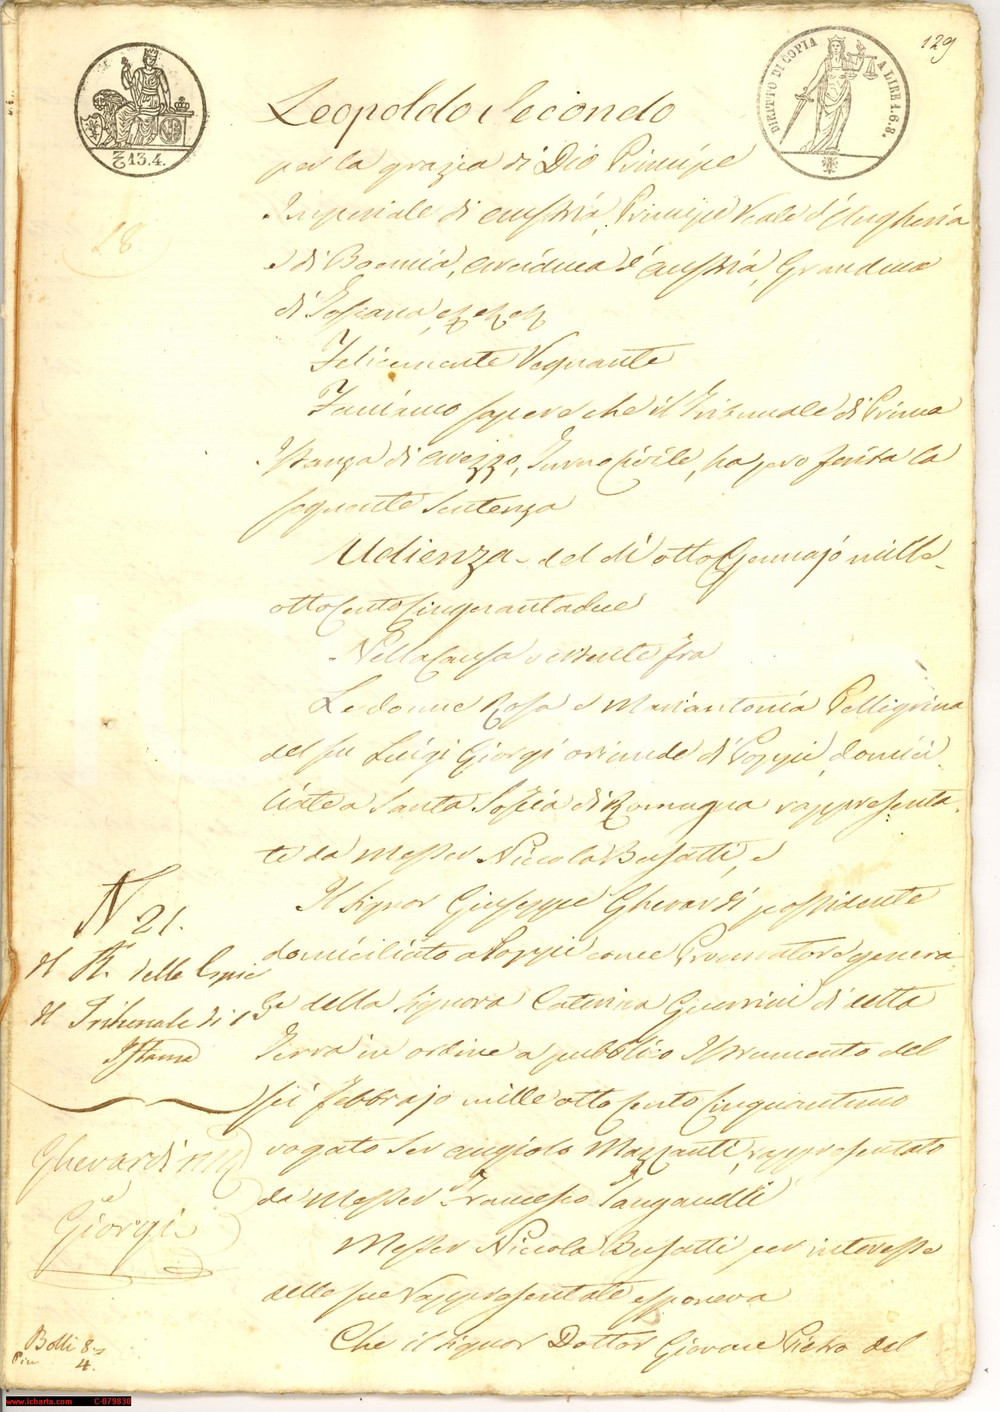 129
DIRITTO DI COPIA A LIRE 1.6.8.
13.4.
28
Leopoldo Secondo
per la grazia di Dio Principe
Imperiale di Austria, Principe Reale d'Ungheria
e di Boemia, Arciduca d'Austria, Granduca
di Toscana
Felicemente Regnante
Facciamo sapere che il Tribunale di Prima
Istanza di Arezzo, Turno Civile, ha proferita la
seguente Sentenza
Udienza del dì otto Gennajo mille
ottocento cinquantadue
Nella Causa vertente fra
Le donne Rosa e Mariantonia Pellegrina
del fu Luigi Giorgi oriunde di Poppi, domici-
liate a Santa Sofia di Romagna rappresenta-
te da Messer Niccola Busatti, e
Il Signor Giuseppe Gherardi possidente
domiciliato a Poppi come Procuratore genera-
le della Signora Caterina Guerrini di detta
Terra in ordine a pubblico Istrumento del
sei Febbrajo mille ottocento cinquantuno
rogato Ser Angiolo Mazzanti, rappresentato
da Messer Francesco Tanganelli
Messer Niccola Busatti per interesse
delle sue rappresentate esponeva
Che il Signor Dottor Giovan Pietro del
N 21.
delle Copie
Tribunale di 1ª
Istanza
Gherardi
e
Giorgi
Bolli 8
4.
www.icharta.com C-079830